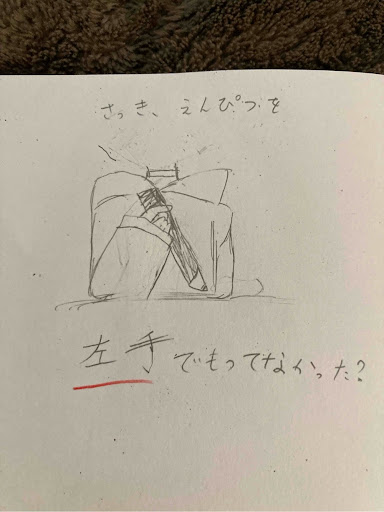 さっき、えんぴつを
左手でもってなかった?